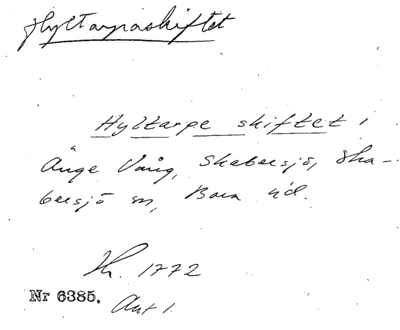 Hyltarpaskiftet
Hyltarpe skiftet i
Änge Vång, Skabersjö, Ska-
bersjö sn, Bara hd.
Kh. 1772
Nr 6385.
Akt 1.